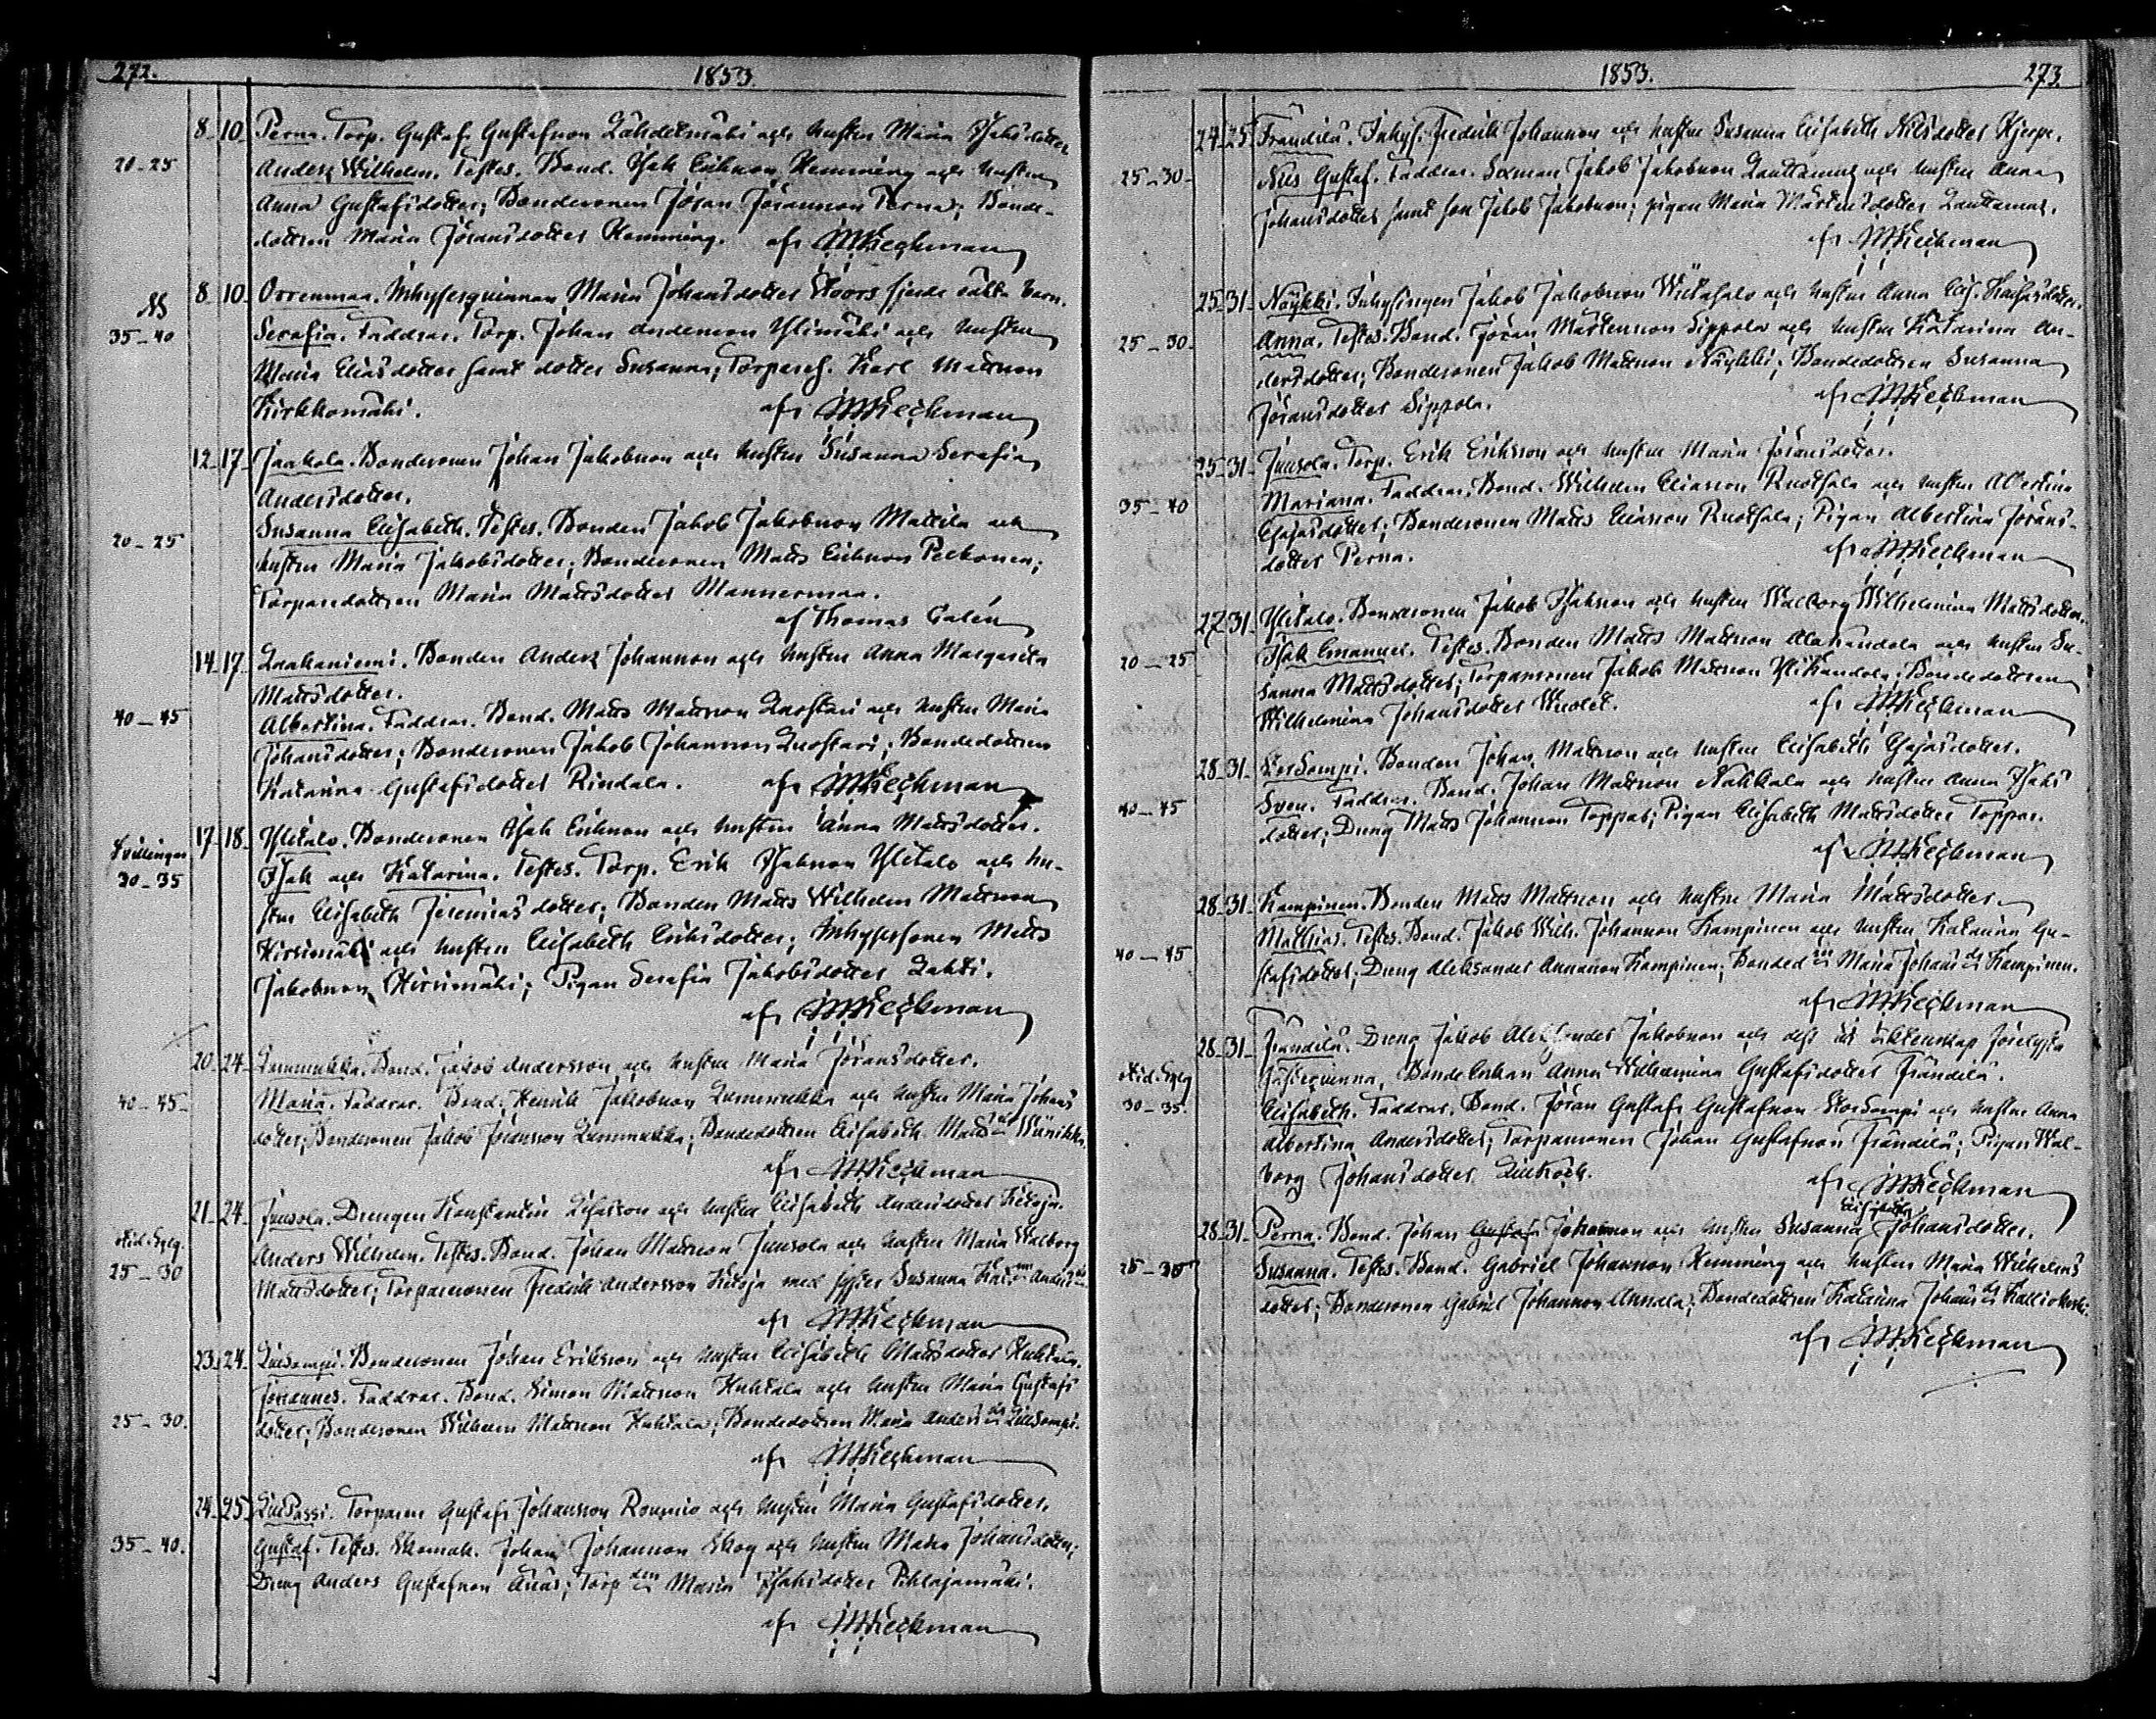 272. 1853.
8 10 Perna. Torp. Gustaf Gustafsson Lähdetmäki och hustru Maria Isaksdotter
20-25 Anders Wilhelm. Testes. Bond. Isak Eriksson Hemming och hustru
Anna Gustafsdotter; Bondesonen Jöran Jöransson Perna; Bonde-
dottren Maria Jöransdotter Hemming. af
8 10 Orrenmaa. Inhysesqvinnan Maria Johansdotter Stoors barn.
35-40 Serafia. Faddrar. Torp. Johan Andersson Ylimäki och hustru
Maria Eliasdotter samt dotter Susanna; Karl Mattsson
Kirkkomäki. af
12 17 Jaakola. Bondesonen Johan Jakobsson och hustru Susanna Serafia
Andersdotter.
20-25 Susanna Elisabeth. Testes. Bonden Jakob Jakobsson Mattila och
hustru Maria Jakobsdotter; Bondesonen Matts Eriksson Pelkonen;
Torparedottren Maria Mattsdotter Mannermaa.
af Thomas Galén
14 17 Laakaniemi. Bonden Anders Johansson och hustru Anna Margareta
Mattsdotter.
40-45 Albertina. Faddrar. Bond. Matts Mattsson Luostari och hustru Maria
Johansdotter; Bondesonen Jakob Johansson Luostari; Bondedottren
Katarina Gustafsdotter Rindala. af
17 18 Ylitalo. Bondesonen Isak Eriksson och hustru Anna Mattsdotter.
Tvillingar
30-35 Isak och Katarina. Testes. Torp. Erik Isaksson Ylitalo och hu-
stru Elisabeth Jeremiasdotter; Bonden Matts Wilhelm Mattsson
Hirsimäki och hustru Elisabeth Eriksdotter; Matts
Jakobsson Hirsimäki; Pigan Serafia Jakobsdotter Lahti.
af
20 24 Lummukka. Bond. Jakob Andersson och hustru Maria Jöransdotter.
40-45 Maria. Faddrar. Bond. Henrik Jakobsson Lummukka och hustru Maria Johans
dotter; Bondesonen Jakob Jöransson Lummukka; Bondedottren Elisabeth
af
21 24 Junsola. Drengen Konstantin och hustru Elisabeth Andersdotter Kitoja.
25-30 Anders Wilhelm. Testes. Bond. Johan Mattsson Junsola och hustru Maria Walborg
Mattsdotter; Torparesonen Fredrik Andersson Kitoja med syster Susanna
af
23 24 Liisompi. Bondesonen Johan Eriksson och hustru Elisabeth Mattsdotter Huhtala.
Johannes. Faddrar. Bond. Simon Mattsson Huhtala och hustru Maria Gustafs
25-30. dotter; Bondesonen Wilhelm Mattsson Huhtala; Bondedottren Maria Anders
af
24 25 Torparen Gustaf Johansson och hustru Maria Gustafsdotter.
35-40. Gustaf. Testes. Skomak. Johan Johansson Skog och hustru Maria Johansdotter;
Dreng Anders Gustafsson Änäs; Torp Maria Isaksdotter Pihlajamäki.
af
1853. 273
24 25 Frändilä. Inhys. Fredrik Johansson och hustru Susanna Elisabeth Nilsdotter Hjerpe.
25-30 Nils Gustaf. Faddrar. Jakob Jakobsson Lauttamus och hustru Anna
Johansdotter samt son Jakob Jakobsson; pigan Maria Mårtensdotter Lauttamus.
af
25 31 Näykki. Inhysingen Jakob Jakobsson och hustru Anna
25-30 Anna. Testes. Bond. Jöran Mårtensson Sippola och hustru Katarina An-
dersdotter; Bondesonen Jakob Mattsson Näykki; Bondedottren Susanna
Jöransdotter Sippola. af
25 31 Junsola. Torp. Erik Eriksson och hustru Maria Jöransdotter.
35-40 Mariana. Faddrar. Bond. Wilhelm Eliasson Ruotsala och hustru Albertina
Esajasdotter; Bondesonen Matts Eliasson Ruotsala; Pigan Albertina Jörans-
dotter Perna. af
27 31 Ylitalo. Bondesonen Jakob Isaksson och hustru Walborg Wilhelmina Mattsdotter.
20-25 Isak Emanuel. Testes. Bonden Matts Mattsson och hustru Su-
sanna Mattsdotter; Torparesonen Jakob Mattsson; Bondedottren
Wilhelmina Johansdotter Wuolet. af
28 31 Storsompi. Bonden Johan Mattsson och hustru Elisabeth Esajasdotter.
40-45 Sven. Faddrar. Bond. Johan Mattsson Nahkala och hustru Anna Isaks
dotter; Dreng Matts Johansson Toppar; Pigan Elisabeth Mattsdotter Toppar.
af
28 31 Kampinen. Bonden Matts Mattsson och hustru Maria Mattsdotter.
40-45 Mathias. Testes. Bond. Jakob Wilh. Johansson Kampinen och hustru Katarina Gu-
stafsdotter; Dreng Aleksander Kampinen; Bonded Maria Johans Kampinen.
af
28 31 Frändilä. Dreng Jakob Aleksander Jakobsson och dess äktenskap
30-35. Bondeenkan Anna Wilhelmina Gustafsdotter Frändilä.
Elisabeth. Faddrar. Bond. Jöran Gustaf Gustafsson Storsompi och hustru Anna
Albertina Andersdotter; Torparesonen Johan Gustafsson Frändilä; Pigan Wal-
borg Johansdotter. af
Elisabeth
28 31 Perna. Bond. Johan Gustaf Johansson och hustru Susanna Johansdotter.
25-30 Susanna. Testes. Bond. Gabriel Johansson Hemming och hustru Maria Wilhelms
dotter; Bondesonen Gabriel Johansson Annala; Bondedottren Katarina Johans
af